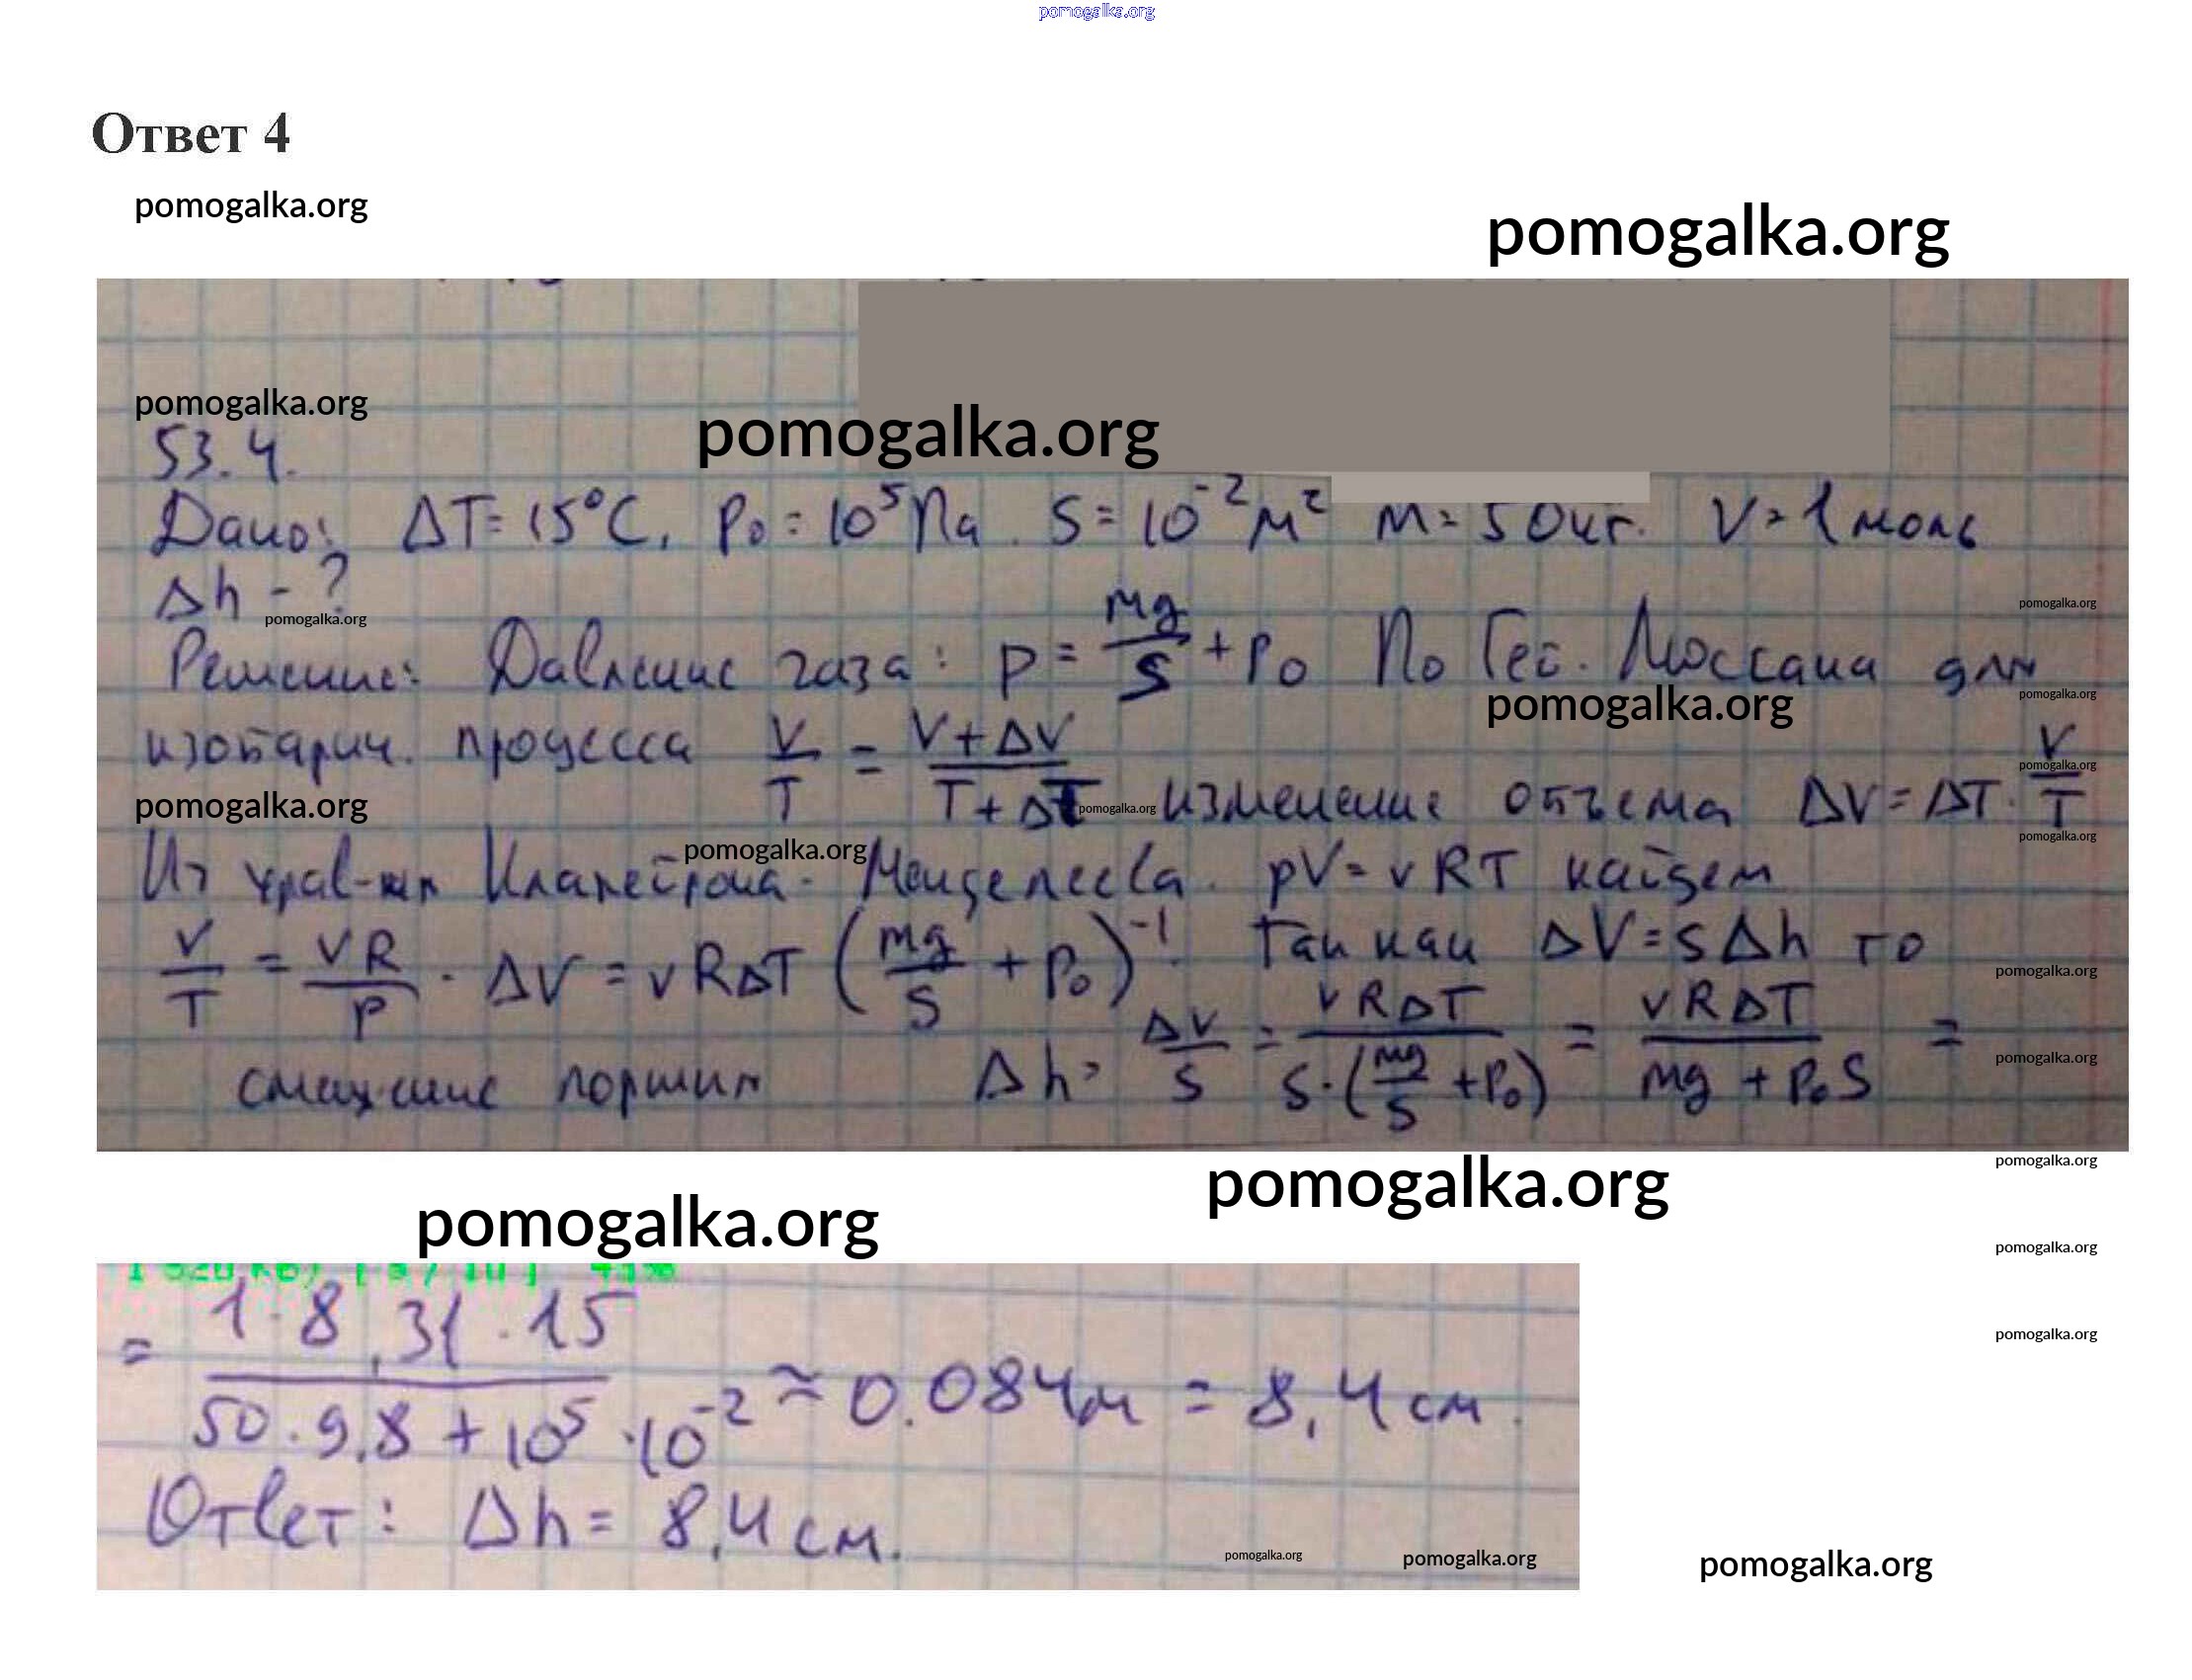 pomogalka.org
Ответ 4
pomogalka.org
pomogalka.org
pomogalka.org
pomogalka.org
53.4.
Дано: ΔT=15°C, P₀=10⁵Па. S=10⁻²м² m=50кг. V=1моль
Δh-?
pomogalka.org
pomogalka.org
Решение: Давление газа: p = mg/S + P₀ По Гей. Люссака для
pomogalka.org
pomogalka.org
изобарич. процесса V/T = (V+ΔV)/(T+ΔT) изменение объема ΔV=ΔT·V/T
pomogalka.org
pomogalka.org
pomogalka.org
pomogalka.org
pomogalka.org
Из урав-ия Клапейрона-Менделеева. pV=νRT найдем
V/T = νR/P. ΔV=νRΔT(mg/S + P₀)⁻¹. Так как ΔV=SΔh то
pomogalka.org
смещение поршня Δh= ΔV/S = νRΔT/(S·(mg/S+P₀)) = νRΔT/(mg+P₀S) =
pomogalka.org
pomogalka.org
pomogalka.org
pomogalka.org
pomogalka.org
= 1·8,31·15/(50·9,8+10⁵·10⁻²) ≈ 0.084м = 8,4см.
pomogalka.org
Ответ: Δh= 8,4см.
pomogalka.org
pomogalka.org
pomogalka.org